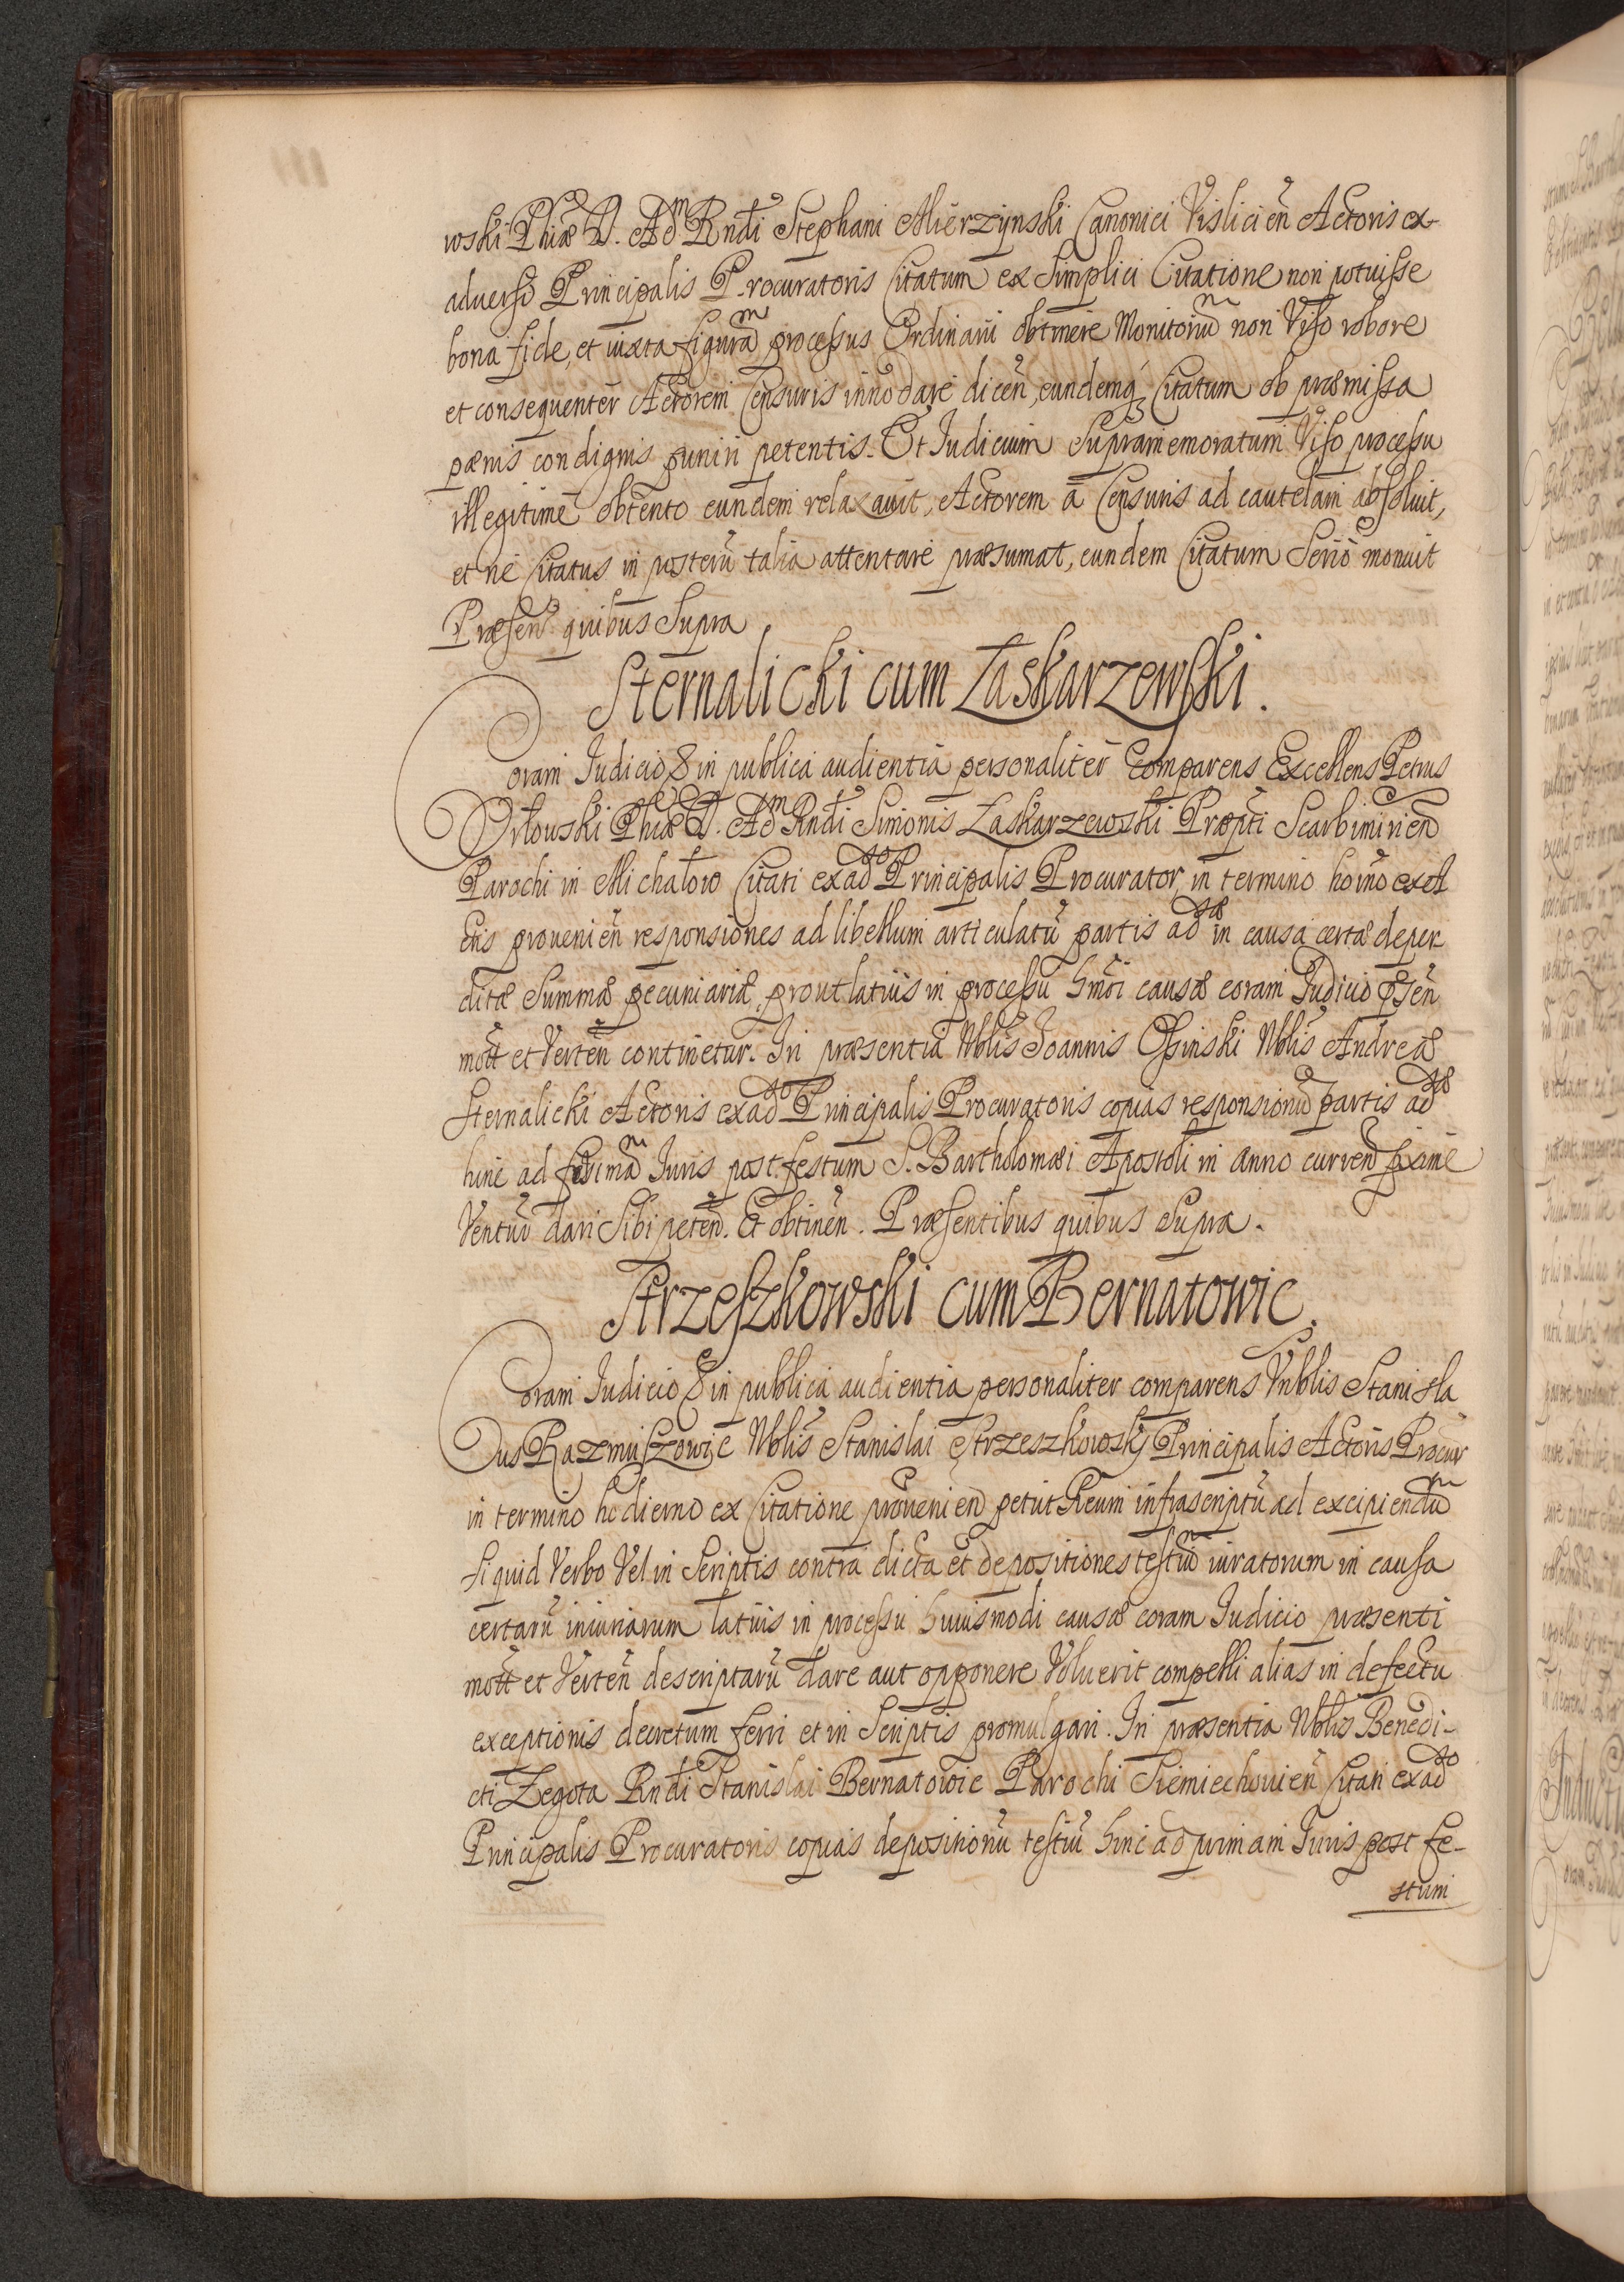 wski Phiæ D. Adm Rndi Stephani Mierzynski Canonici Vislicień Actoris ex
aduerso Principalis Procuratoris Citatum ex Simplici Citatione non potuisse
bona fide, et iuxta figuram processus Ordinarii obtinere Monitoriū non Viso robore
et consequenter Actorem Censuris innodare dicen̄, eundemq́ Citatum ob præmissa
pænis condignis puniri petentis. Et Iudicium Supramemoratum Viso processu
illegitime obtento eundem relaxauit, Actorem à Censuris ad cautelam absoluit,
et ne Citatus in posterū talia attentare præsumat, eundem Citatum Serio monuit
Præsen̄ quibus Supra
Sternalicki cum Zaskarzewski.
Coram Iudicio & in publica audientia personaliter Comparens Excellens Petrus
Orłowski Phiæ D. Adm Rndi Simonis Zaskarzewski Præpti Scarbimirien̄
Parochi in Michałow Citati ex adso Principalis Procurator, in termino hoīno ex Act
Cris prouenien̄ responsiones ad libellum articulatū partis adsæ in causa certæ deper
ditæ Summæ pecuniariæ, prout latius in processu hm̄oi causæ coram Iudicio p̄sen̄
mott et Verten̄ continetur. In præsentia Nblis Ioannis Ossinski Nblis Andreæ
Sternalicki Actoris ex adso Principalis Procuratoris copias responsionū partis adsæ
hinc ad primam Iuris post festum S. Bartholomæi Apostoli in anno curren̄ pxime
Ventur̄ dari Sibi peten̄. Et obtinen̄. Præsentibus quibus Supra.
Strzeszkowski cum Bernatowic.
Coram Iudicio & in publica audientia personaliter comparens Nblis Stanisla
us Razmuszowic Nblis Stanislai Strzeszkowskj Principalis Actoris Procur̄
in termino hodierno ex Citatione prouenien̄ petiit Reum infrascriptū ad excipiendum
Siquid Verbo Vel in Scriptis contra dicta et depositiones testium iuratorum in causa
certarū iniuriarum latius in processu huiusmodi causæ coram Iudicio præsenti
mott et Verten̄ descriptarū dare aut opponere Voluerit compelli alias in defectu
exceptionis decretum ferri et in Scriptis promulgari. In præsentia Nblis Benedi-
cti Zegota Rndi Stanislai Bernatowic Parochi Siemiechouien̄ Citati ex adso
Principalis Procuratoris copias depositionū testiū hinc ad primam Iuris post fe-
stum